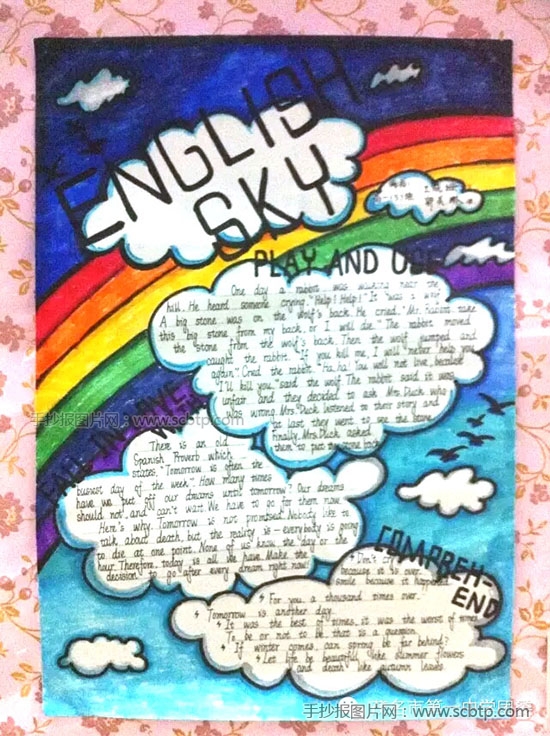 ENGLISH
SKY
PLAY AND USE
One day a rabbit was walking near the
hill. He heard someone crying, "Help! Help!" It was a wolf
A big stone was on the wolf's back. He cried. "Mr. Rabbit, take
this big stone from my back, or I will die." The rabbit moved
the stone from the wolf's back. Then the wolf jumped and
caught the rabbit. "If you kill me, I will never help you
again" Cried the rabbit. "ha, ha! You will not live, because
I'll kill you." said the wolf. The rabbit said it was
unfair. and they decided to ask Mrs. Duck who
was wrong. Mrs. Duck listened to their story and
at last they went to see the stone
Finally Mrs. Duck asked
them to put the stone back
手抄报图片网:www.scbtp.com
There is an old
Spanish Proverb which
states, "Tomorrow is often the
busiest day of the week." How many times
have we put off our dreams until tomorrow? Our dreams
should not, and can't wait. We have to go for them now.
Here's why. Tomorrow is not promised. Nobody like to
talk about death, but the reality is - everybody is going
to die at one point. None of us know the day or the
hour. Therefore, today is all we have. Make the
decision to go after every dream right now!
COMPREH-
END
Don't cry
because it is over.
smile because it happened
For you, a thousand times over.
Tomorrow is another day.
It was the best of times, it was the worst of times
To be or not to be that is a question.
If winter comes, can spring be far behind?
Let life be beautiful like summer flowers
and death like autumn leaves.
手抄报图片网:www.scbtp.com